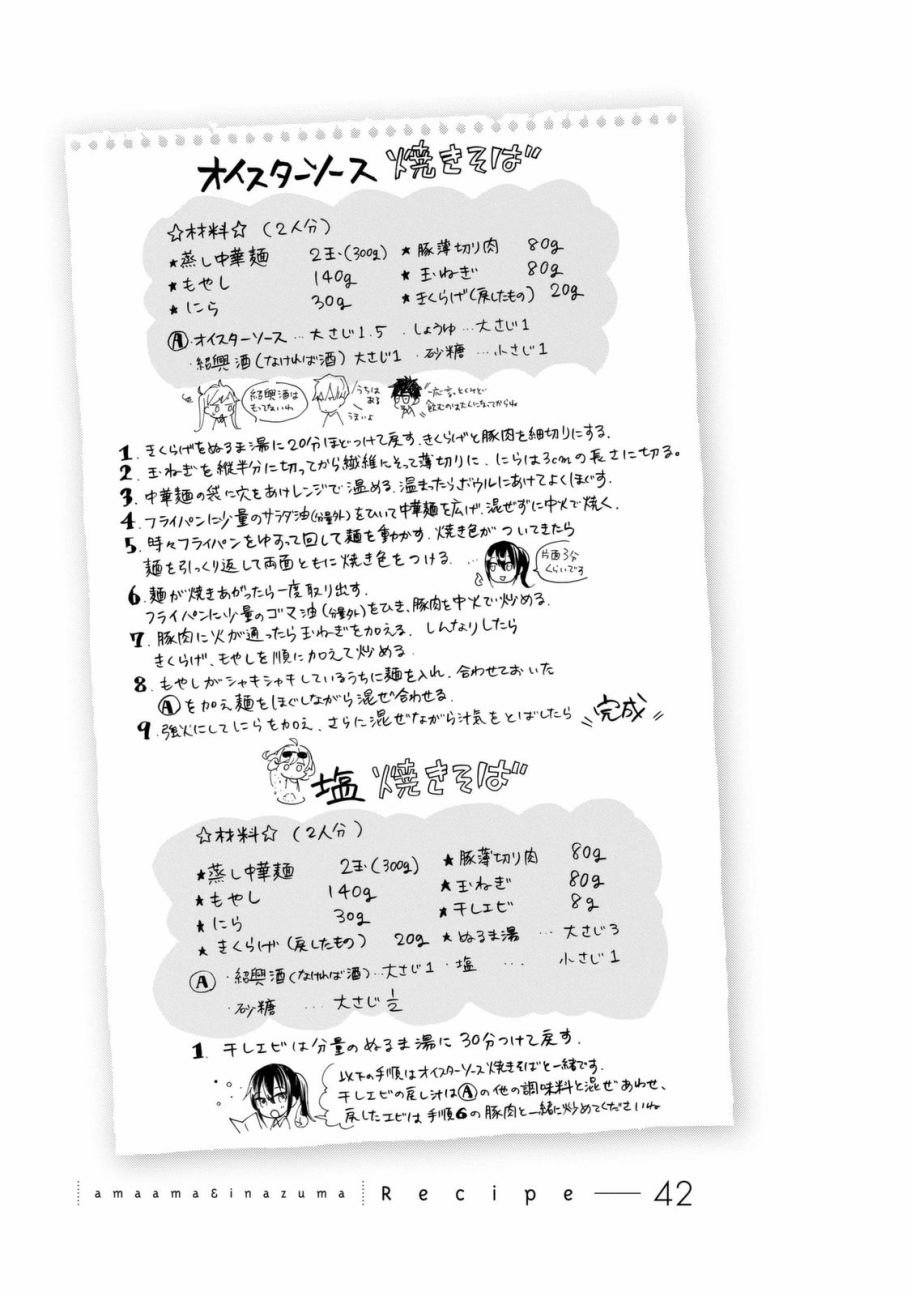 オイスターソース 焼きそば
☆材料☆ (2人分)
★蒸し中華麺 2玉(300g) ★豚薄切り肉 80g
★もやし 140g ★玉ねぎ 80g
★にら 30g ★きくらげ(戻したもの) 20g
Ⓐ・オイスターソース…大さじ1.5 ・しょうゆ…大さじ1
・紹興酒(なければ酒)大さじ1 ・砂糖…小さじ1
紹興酒は
もってないわ
うちは
ある
うまいよ
一応言っとくけど
飲むのは大人になってからね
1.きくらげをぬるま湯に20分ほどつけて戻す。きくらげと豚肉を細切りにする。
2.玉ねぎを縦半分に切ってから繊維にそって薄切りに、にらは3cmの長さに切る。
3.中華麺の袋に穴をあけレンジで温める。温まったらボウルにあけてよくほぐす。
4.フライパンに少量のサラダ油(分量外)をひいて中華麺を広げ、混ぜずに中火で焼く。
5.時々フライパンをゆすって回して麺を動かす。焼き色がついてきたら
麺を引っくり返して両面ともに焼き色をつける。
片面3分
くらいです
6.麺が焼きあがったら一度取り出す。
フライパンに少量のゴマ油(分量外)をひき、豚肉を中火で炒める。
7.豚肉に火が通ったら玉ねぎを加える。しんなりしたら
きくらげ、もやしを順に加えて炒める。
8.もやしがシャキシャキしているうちに麺を入れ、合わせておいた
Ⓐを加え麺をほぐしながら混ぜ合わせる。
9.強火にしてにらを加え、さらに混ぜながら汁気をとばしたら 完成
塩 焼きそば
☆材料☆ (2人分)
★蒸し中華麺 2玉(300g) ★豚薄切り肉 80g
★もやし 140g ★玉ねぎ 80g
★にら 30g ★干しエビ 8g
★きくらげ(戻したもの) 20g ★ぬるま湯 …大さじ3
Ⓐ・紹興酒(なければ酒)…大さじ1 ・塩 … 小さじ1
・砂糖 …大さじ½
1.干しエビは分量のぬるま湯に30分つけて戻す。
以下の手順はオイスターソース焼きそばと一緒です。
干しエビの戻し汁はⒶの他の調味料と混ぜあわせ、
戻したエビは手順6の豚肉と一緒に炒めてくださいね
amaama&inazuma Recipe — 42